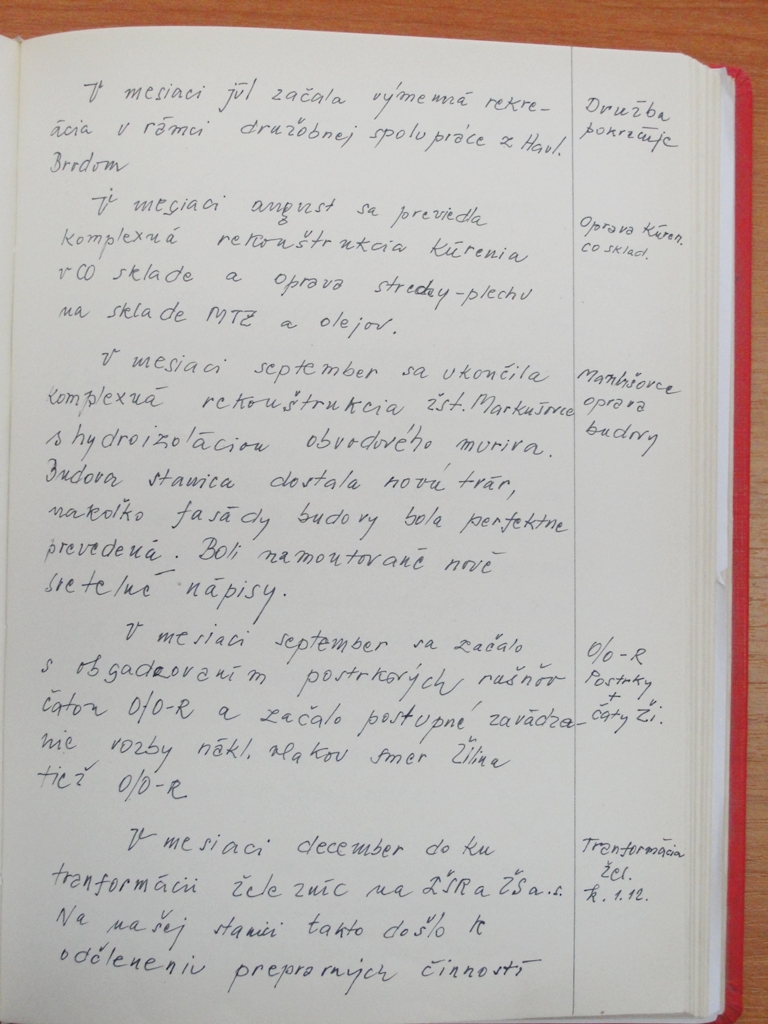 V mesiaci júl začala výmenná rekre-
ácia v rámci družobnej spolupráce z Havl.
Brodom
V mesiaci august sa previedla
komplexná rekonštrukcia kúrenia
v CO sklade a oprava strechy-plechu
na sklade MTZ a olejov.
V mesiaci september sa ukončila
komplexná rekonštrukcia žst. Markušovce
s hydroizoláciou obvodového muriva.
Budova stanica dostala novú tvár,
nakoľko fasády budovy bola perfektne
prevedená. Boli namontované nové
svetelné nápisy.
V mesiaci september sa začalo
s obsadzovaním postrkových rušňov
čatou O/O-R a začalo postupné zavádza-
nie vozby nákl. vlakov smer Žilina
tiež O/O-R
V mesiaci december do ku
tranformácii železníc na ŽSR a ŽS a.s.
Na našej stanici takto došlo k
odčleneniu prepravných činností
Družba
pokračuje
Oprava kúren.
CO sklad.
Markušovce
oprava
budovy
O/O-R
Postrky
+
čaty Ži.
Tranformácia
žel.
k. 1.12.